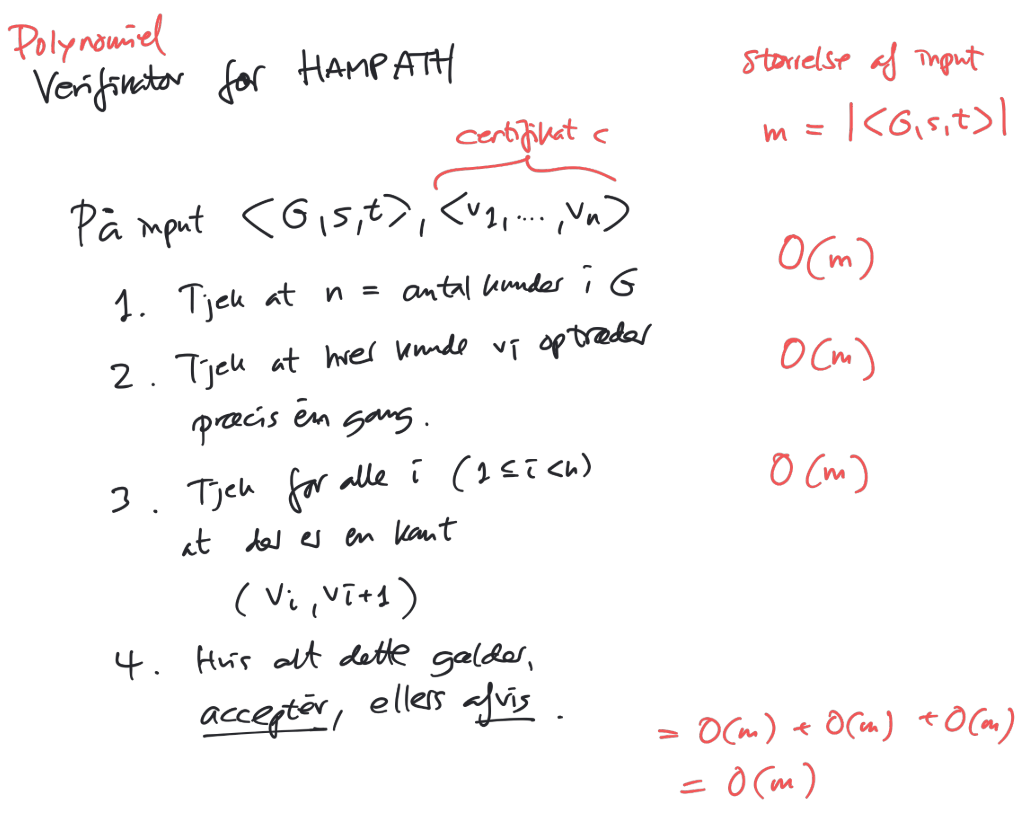 Polynomiel
Verifikator for HAMPATH
størrelse af input
m = |<G,s,t>|
certifikat c
På input <G,s,t>, <v1,...,vn>
O(m)
1. Tjek at n = antal knuder i G
2. Tjek at hver knude vi optræder
O(m)
præcis én gang.
3. Tjek for alle i (1 ≤ i < n)
O(m)
at der er en kant
(vi, vi+1)
4. Hvis alt dette gælder,
acceptér, ellers afvis.
= O(m) + O(m) + O(m)
= O(m)